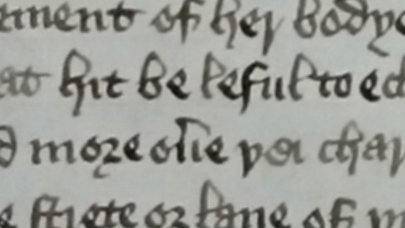 ament of her body
at hit be leful to ed
d more oþe yer char
e strete or lane of m